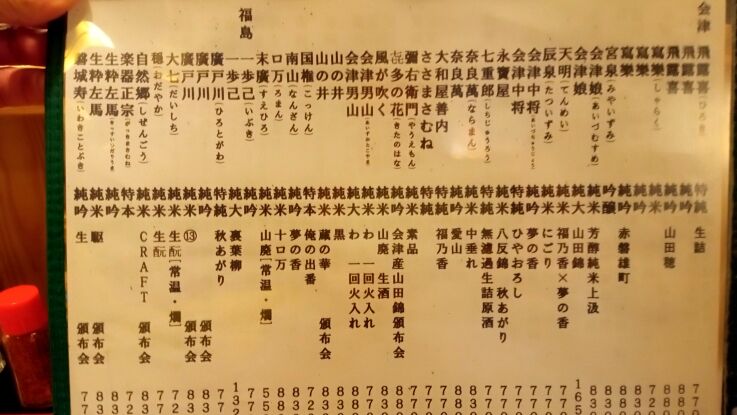 会津
飛露喜(ひろき) 特純 生詰
飛露喜 純吟
飛露喜 純吟 山田穂
寫樂(しゃらく) 純米
寫樂 純米
寫樂 純吟 赤磐雄町
宮泉(みやいずみ) 吟醸
会津娘(あいづむすめ) 純米 芳醇純米上汲
会津娘 純大 山田錦
天明(てんめい) 純米 福乃香×夢の香
辰泉(たついずみ) 純米 にごり
会津中将(あいづちゅうじょう) 純吟 夢の香
会津中将 特純 ひやおろし
永寶屋 純米 八反錦 秋あがり
七重郎(しちじゅうろう) 特純 無濾過生詰原酒
奈良萬(ならまん) 純米 中垂れ
奈良萬 純吟 愛山
大和屋善内 特純 福乃香
ささまさむね 特純
彌右衛門(やうえもん) 純米
㐂多の花(きたのはな) 純吟 会津産山田錦 頒布会
風が吹く 純米 山廃 生酒
会津男山(あいづおとこやま) 純米 わ 一回火入れ
会津男山 純大 わ 一回火入れ
山の井 純米 黒
山の井 純米 蔵の華 頒布会
国権(こっけん) 特本 俺の出番
南山(なんざん) 純吟 夢の香
ロ万(ろまん) 純吟 十ロ万
末廣(すえひろ) 純米 山廃[常温・燗]
福島
一歩己(いぶき) 純吟
一歩己 純大 裏葉柳
廣戸川(ひろとがわ) 特純 秋あがり
廣戸川 純吟 頒布会
廣戸川 純米 ⑬ 頒布会
大七(だいしち) 純米 生酛[常温・燗]
穏(おだやか) 純米 生酛
自然郷(しぜんごう) 純米 CRAFT 頒布会
楽器正宗(がっきまさむね) 特本
生粋左馬(きっすいひだりうま) 純吟
生粋左馬 純米 駆 頒布会
磐城寿(いわきことぶき) 純吟 生 頒布会